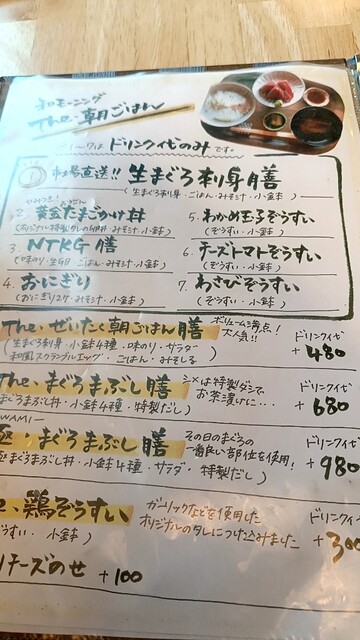 和モーニング
The・朝ごはん
ドリンク代のみです。
市場直送!! 生まぐろ刺身膳
(生まぐろ刺身・ごはん・みそ汁・小鉢)
2. 黄金たまごかけ丼
小鉢)
3. NTKG 膳
(味のり・生卵・ごはん・みそ汁・小鉢)
4. おにぎり
(おにぎり2ケ・みそ汁・小鉢)
5. わかめ玉子ぞうすい
(ぞうすい・小鉢)
6. チーズトマトぞうすい
(ぞうすい・小鉢)
7. わさびぞうすい
(ぞうすい・小鉢)
The・ぜいたく朝ごはん膳
ボリューム満点!
大人気!!
(生まぐろ刺身・小鉢4種・味のり・サラダ・
和風スクランブルエッグ・ごはん・みそしる
ドリンク代
+480
The・まぐろまぶし膳
シメは特製ダシで
お茶漬けに・・・
まぐろまぶし丼・小鉢4種・特製だし)
ドリンク代
+680
WAMI―
極・まぐろまぶし膳
その日のまぐろの
一番良い部位を使用!
極まぐろまぶし丼・小鉢4種・サラダ・特製だし)
ドリンク代
+980
e・鶏ぞうすい
ガーリックなどを使用した
オリジナルのタレにつけ込みました
うすい・小鉢)
ドリンク
+300
チーズのせ +100